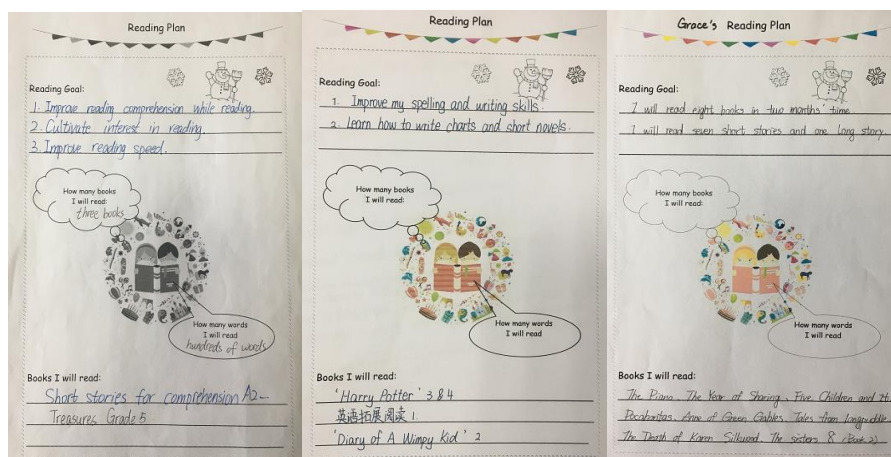 Reading Plan
Reading Goal:
1. Improve reading comprehension while reading.
2. Cultivate interest in reading.
3. Improve reading speed.
How many books
I will read:
three books
How many words
I will read
hundreds of words
Books I will read:
Short stories for comprehension A2
Treasures Grade 5
Reading Plan
Reading Goal:
1. Improve my spelling and writing skills.
2. Learn how to write charts and short novels.
How many books
I will read:
How many words
I will read
Books I will read:
'Harry Potter' 3 & 4
英语拓展阅读 1
'Diary of A Wimpy Kid' 2
Grace's Reading Plan
Reading Goal:
I will read eight books in two months' time
I will read seven short stories and one long story.
How many books
I will read:
How many words
I will read
Books I will read:
The Piano, The Year of Sharing, Five Children and
Pocahontas, Anne of Green Gables, Tales from
The Death of Karen Silkwood, The sisters 8 (Book 2)